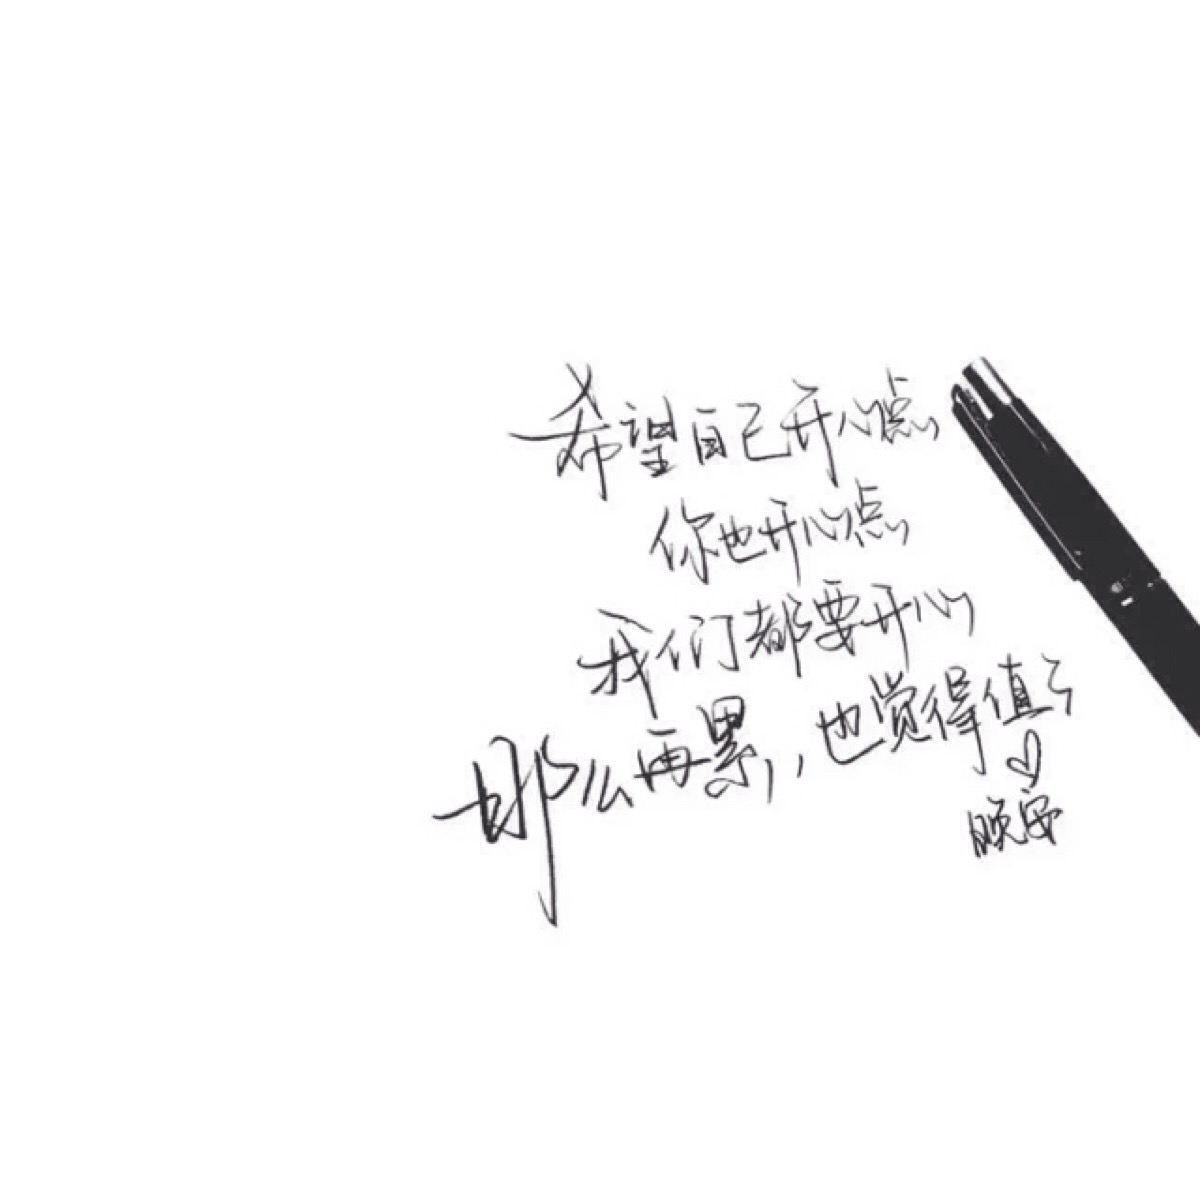 希望自己开心点
你也开心点
我们都要开心
那么再累,也觉得值了
晚安